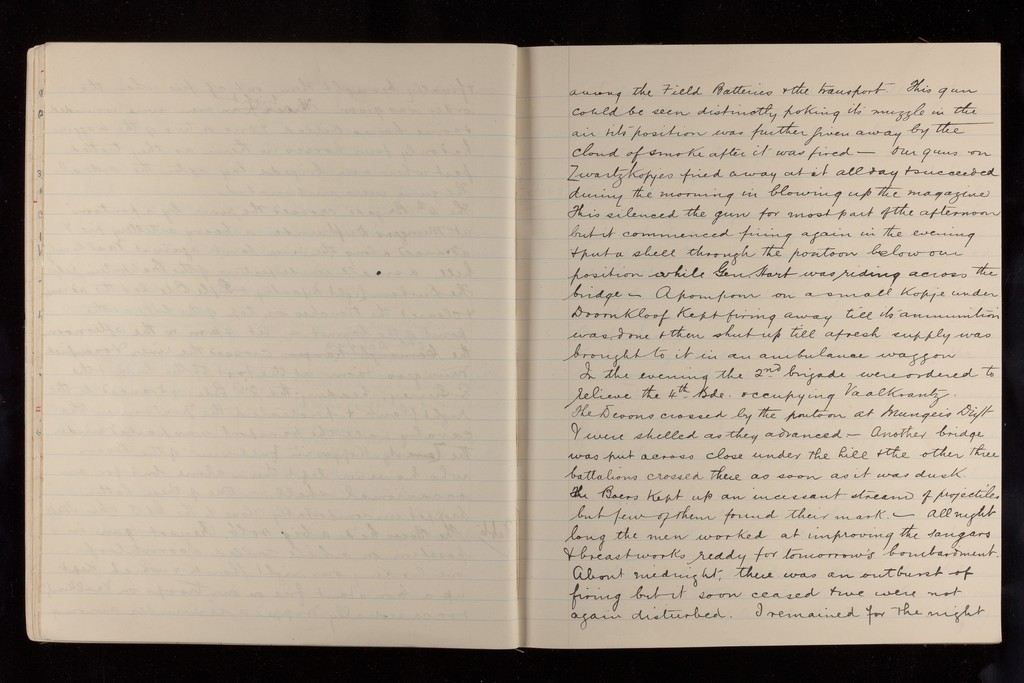 among the Field Batteries & the transport. This gun
could be seen distinctly poking its muzzle in the
air & its position was further given away by the
cloud of smoke after it was fired — Our guns on
Zwartzkopjes fired away at it all day & succeeded
during the morning in blowing up the magazine
This silenced the gun for most part of the afternoon
but it commenced firing again in the evening
& put a shell through the pontoon below our
position while Gen Hart was riding across the
bridge — A pompom on a small Kopje under
Doornkloof kept firing away till its ammunition
was done & then shut up till a fresh supply was
brought to it in an ambulance waggon
In the evening the 2nd brigade were ordered to
relieve the 4th Bde. occupying Vaalkrantz.
The Devons crossed by the pontoon at Mungers Drift
& were shelled as they advanced — Another bridge
was put across close under the hill & the other three
battalions crossed there as soon as it was dusk
The Boers kept up an incessant stream of projectiles
but few of them found their mark. — All night
long the men worked at improving the sangars
& breastworks reddy for tomorrow's bombardment.
About midnight, there was an outburst of
firing but it soon ceased & we were not
again disturbed. I remained for the night